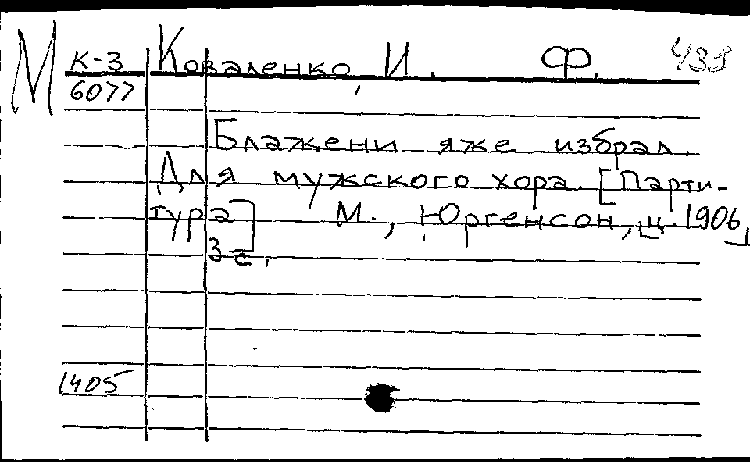 М К-3 Коваленко, И. Ф. 433
6077
Блажени яже избрал.
Для мужского хора. [Парти-
тура] М., Юргенсон, ц. 1906
3 с.
1405